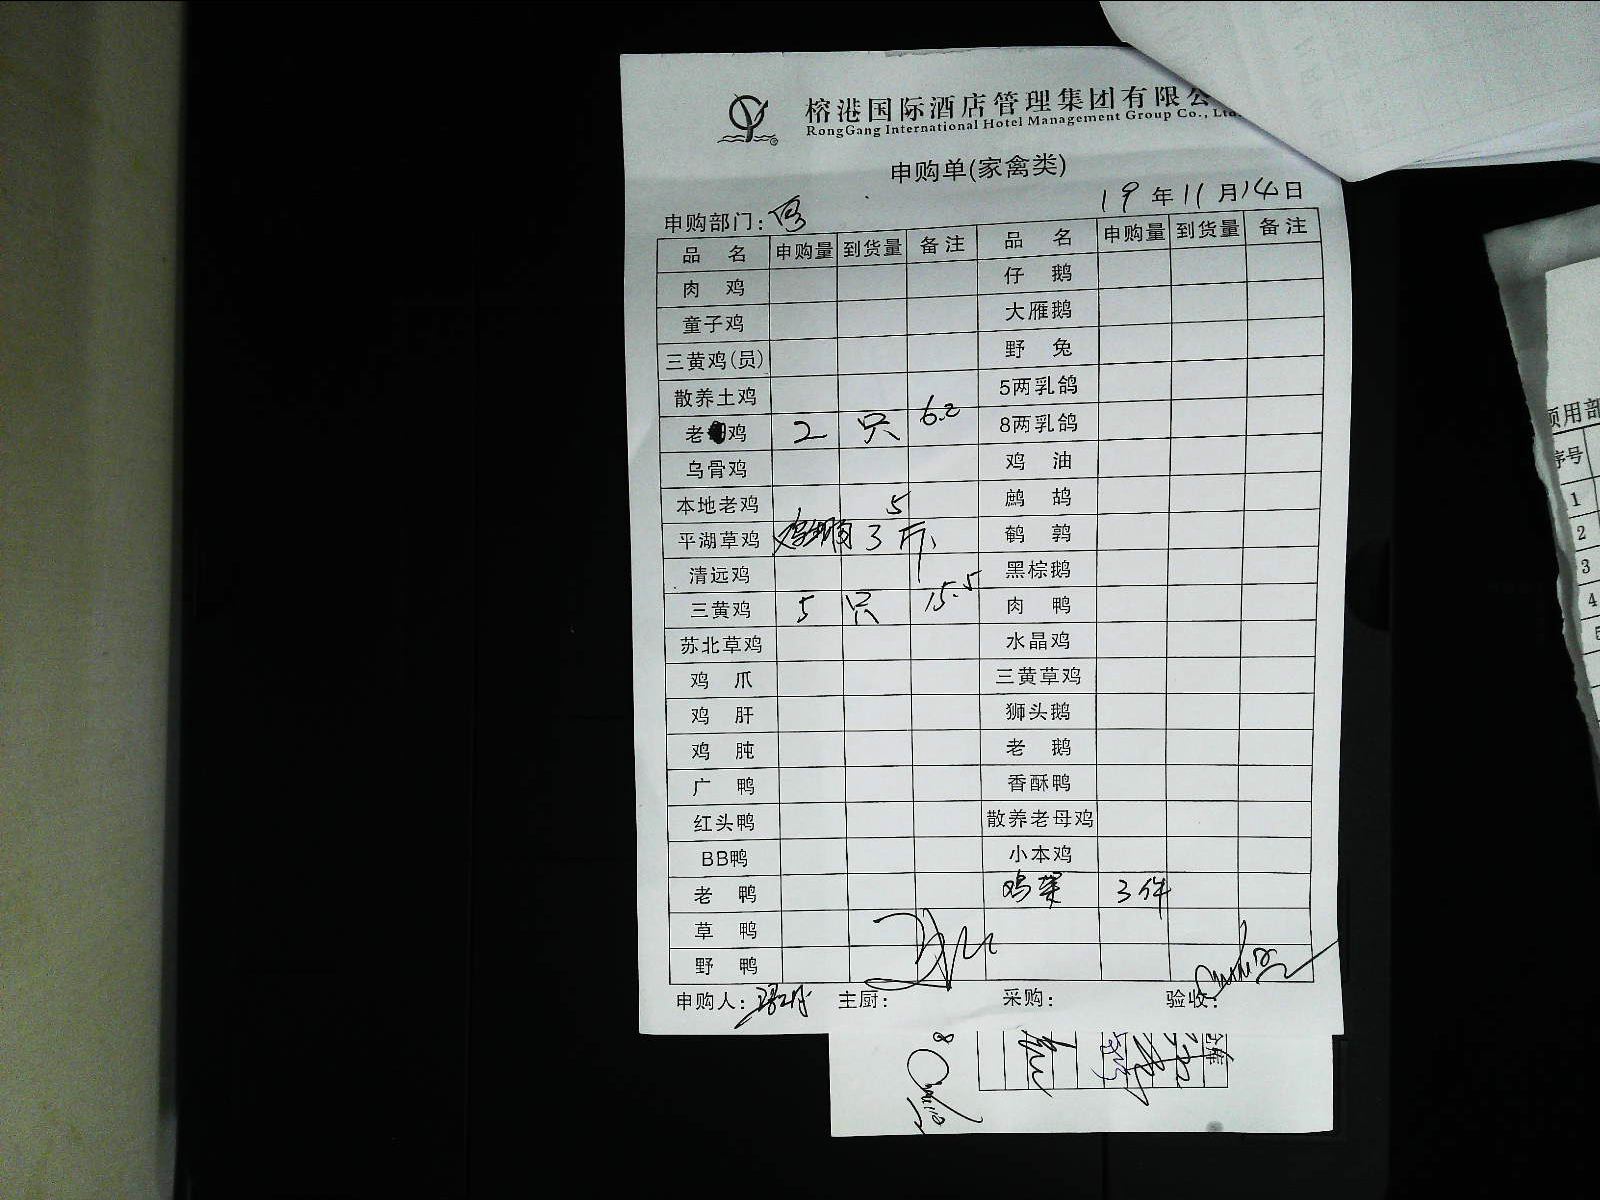 榕港国际酒店管理集团有限公
RongGang International Hotel Management Group Co., Ltd.
申购单(家禽类)
申购部门: 19年11月14日
品 名 申购量 到货量 备注 品 名 申购量 到货量 备注
肉 鸡 仔 鹅
童子鸡 大雁鹅
三黄鸡(员) 野 兔
散养土鸡 5两乳鸽
老 鸡 2 只 6.2 8两乳鸽
乌骨鸡 鸡 油
本地老鸡 5 鹧 鸪
平湖草鸡 3斤 鹌 鹑
清远鸡 黑棕鹅
三黄鸡 5 只 15.5 肉 鸭
苏北草鸡 水晶鸡
鸡 爪 三黄草鸡
鸡 肝 狮头鹅
鸡 肫 老 鹅
广 鸭 香酥鸭
红头鸭 散养老母鸡
BB鸭 小本鸡
老 鸭 鸡架 3件
草 鸭
野 鸭
申购人: 主厨: 采购: 验收:
8
领用部
序号
1
2
3
4
5